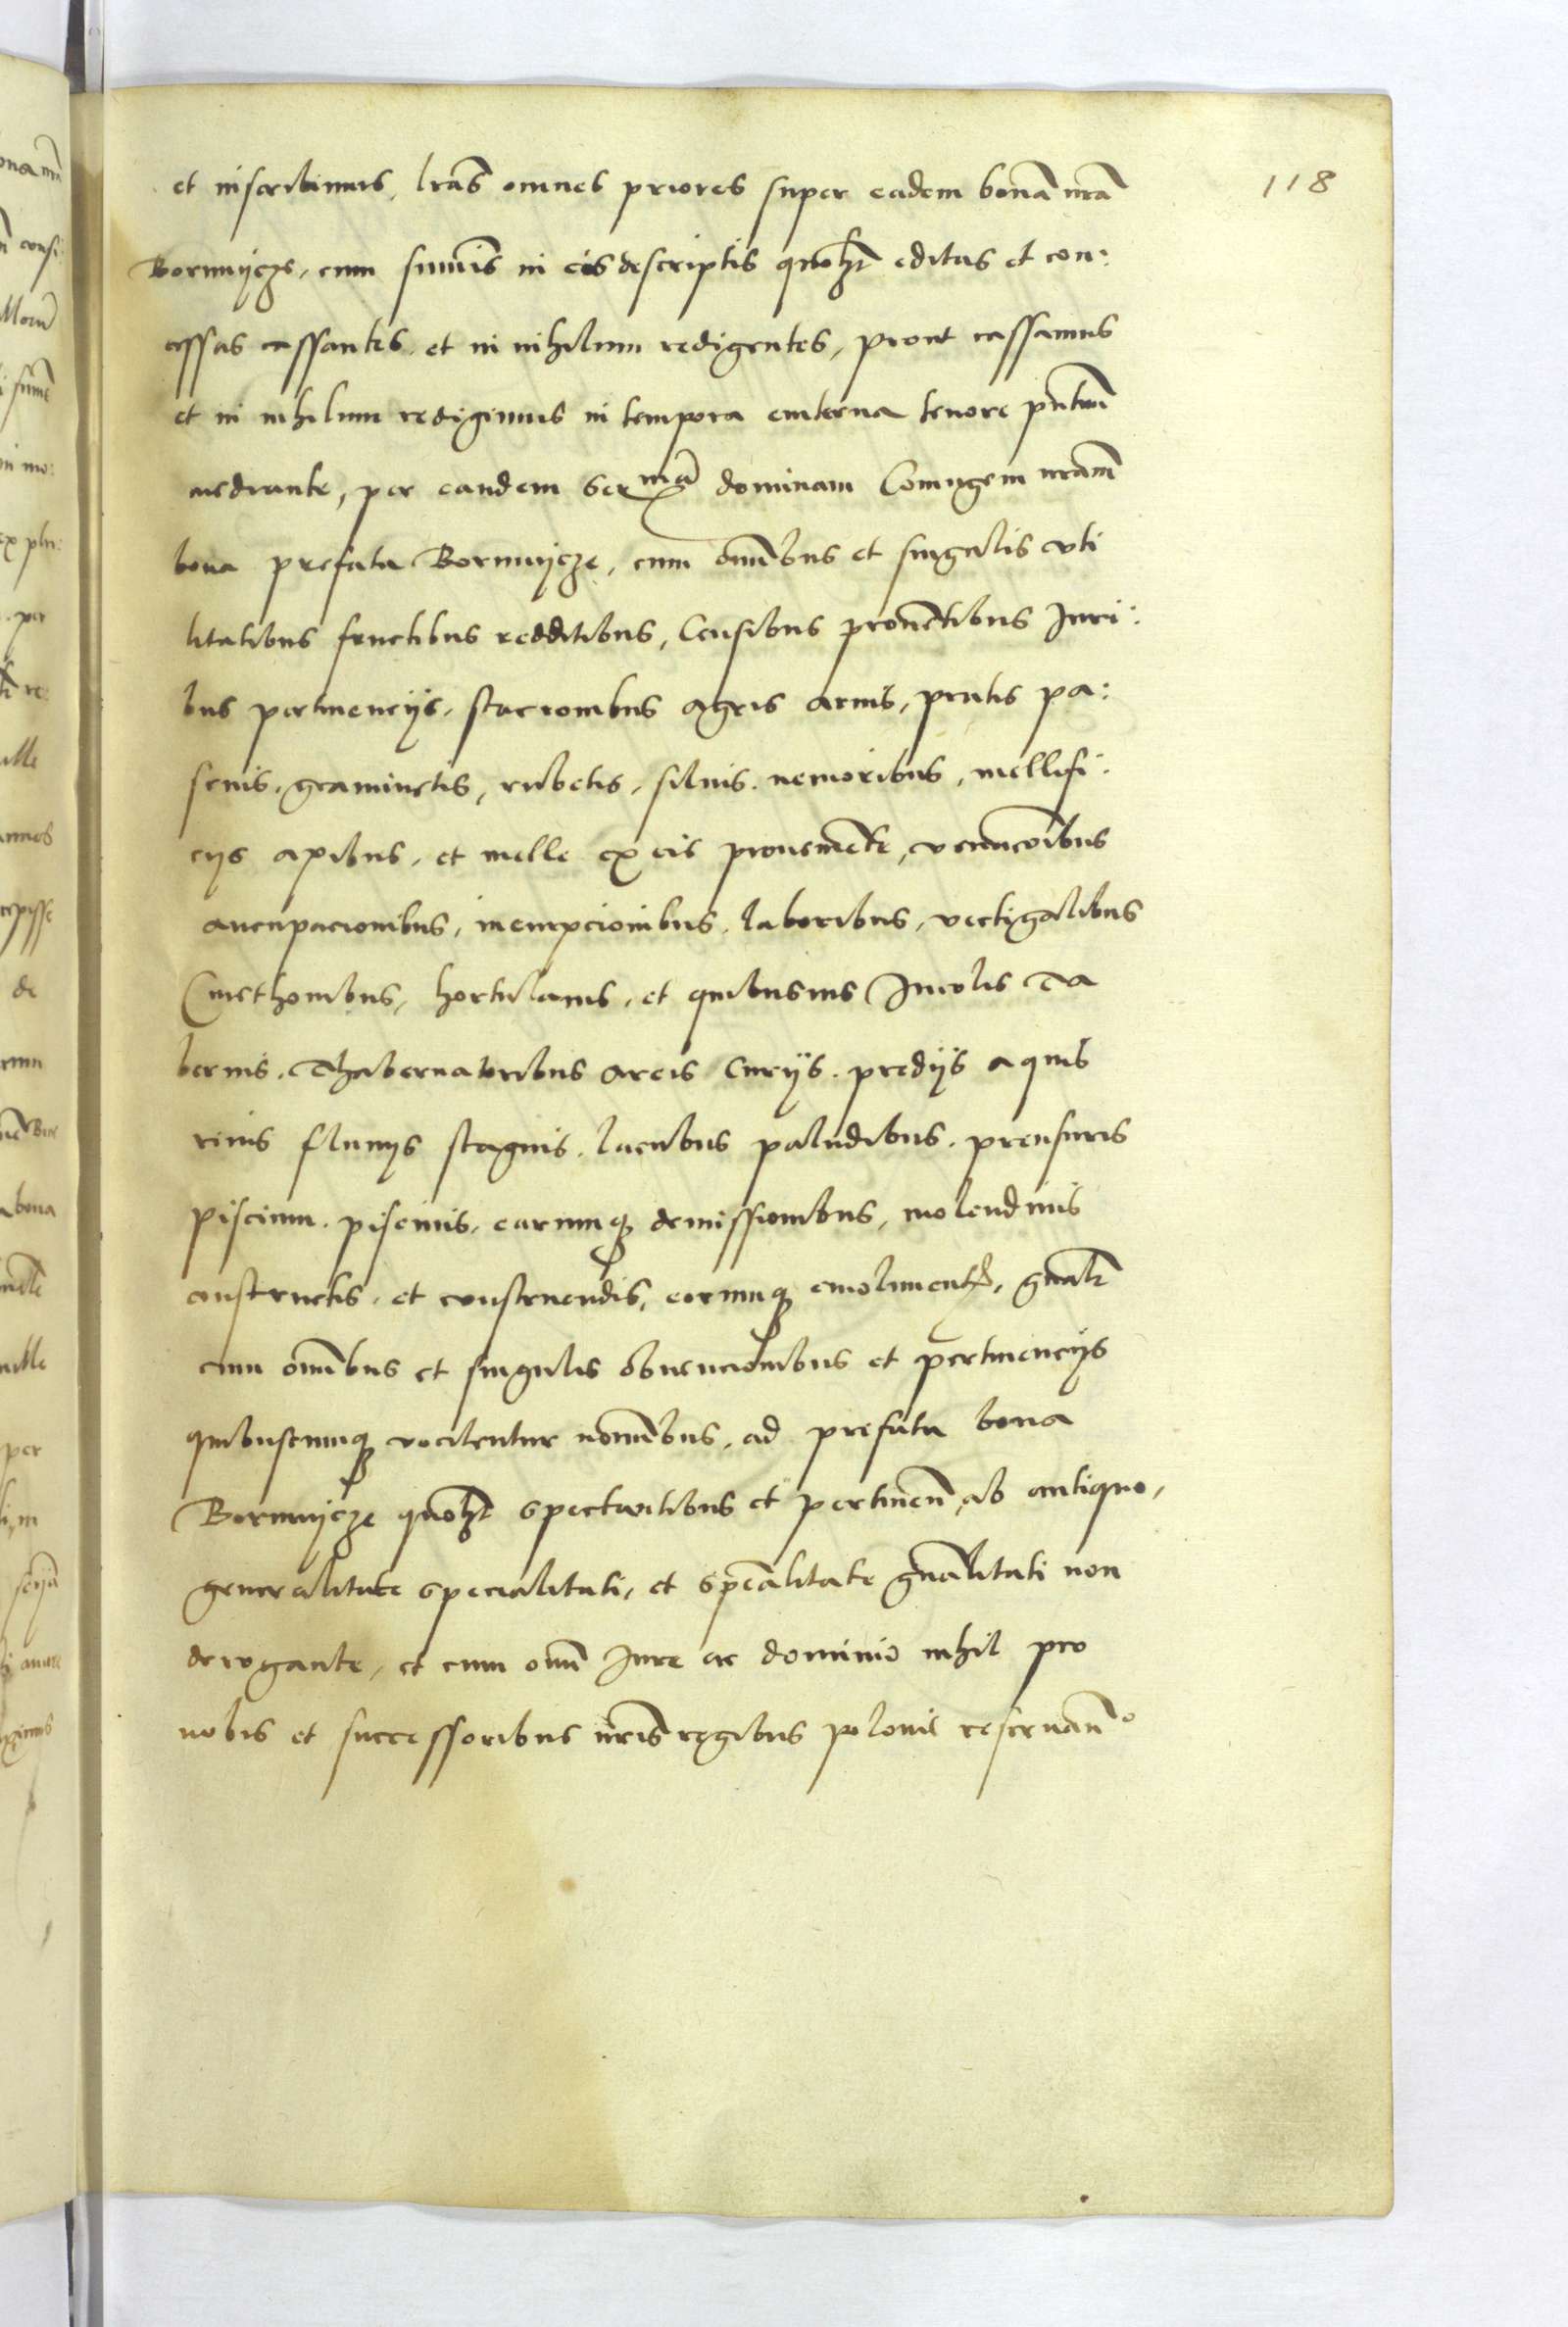 118
et inscribimus, lras omnes priores super eadem bona nra
Bormijcze, cum sumis in eis descriptis quohz editas et con:
cessas cassantes et in nihilum redigentes, prout cassamus
et in nihilum redigimus in tempora eviterna tenore pntium
mediante, per eandem Sermam dominam Coniugem nram
bona prefata Bormijcze, cum omibus et singulis vti
litatibus fructibus redditibus, Censibus prouentibus Juri:
bus pertinencijs, stacionibus agris aruis, pratis pa:
scuis, graminetis, rubetis, siluis, nemoribus, mellifi:
cijs apibus, et melle ex eis proueniente, venacoibus
aucupacionibus, inempcionibus, laboribus, vectigalibus
Cmethonibus, hortulanis, et quibusuis Jncolis Ta
bernis, Thabernatoribus areis Curijs, predijs aquis
riuis fluuijs stagnis, lacubus paludibus, prensuris
piscium, piscinis, earumq demissionibus, molendinis
constructis, et construendis, eorumq emoliment, gnalr
cum omibus et singulis obuencionibus et pertinencijs
quibuscumq vocitentur nominibus, ad prefata bona
Bormijcze quohz spectantibus et pertinen ab antiquo,
generalitate specialitati, et specalitate gnalitati non
derogante, et cum omi Jure ac dominio nihil pro
nobis et successoribus nris regibus polonie reseruan